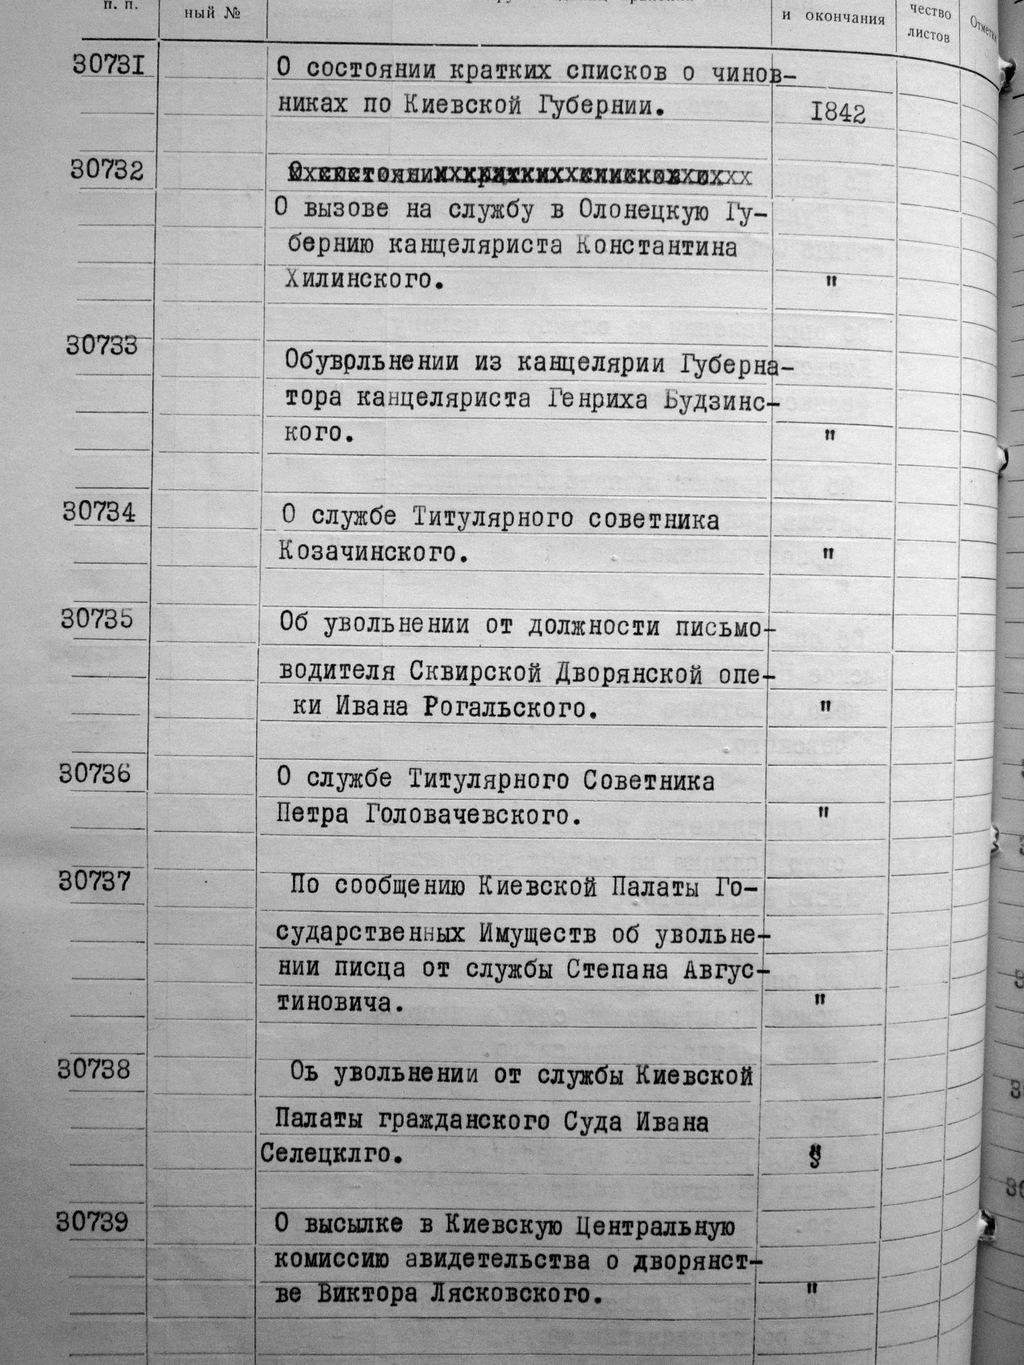 п. п.
ный №
и окончания
чество
листов
Отметк
30731
О состоянии кратких списков о чинов-
никах по Киевской Губернии.
1842
30732
О вызове на службу в Олонецкую Гу-
бернию канцеляриста Константина
Хилинского.
"
30733
Обуврльнении из канцелярии Губерна-
тора канцеляриста Генриха Будзинс-
кого.
"
30734
О службе Титулярного советника
Козачинского.
"
30735
Об увольнении от должности письмо-
водителя Сквирской Дворянской опе-
ки Ивана Рогальского.
"
30736
О службе Титулярного Советника
Петра Головачевского.
"
30737
По сообщению Киевской Палаты Го-
сударственных Имуществ об увольне-
нии писца от службы Степана Авгус-
тиновича.
"
30738
Оь увольнении от службы Киевской
Палаты гражданского Суда Ивана
Селецклго.
"
30739
О высылке в Киевскую Центральную
комиссию авидетельства о дворянст-
ве Виктора Лясковского.
"